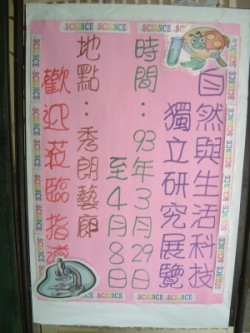 自然與生活科技
獨立研究展覽
時間：93年3月29日
至4月8日
地點：秀朗藝廊
歡迎蒞臨指導
SCIENCE